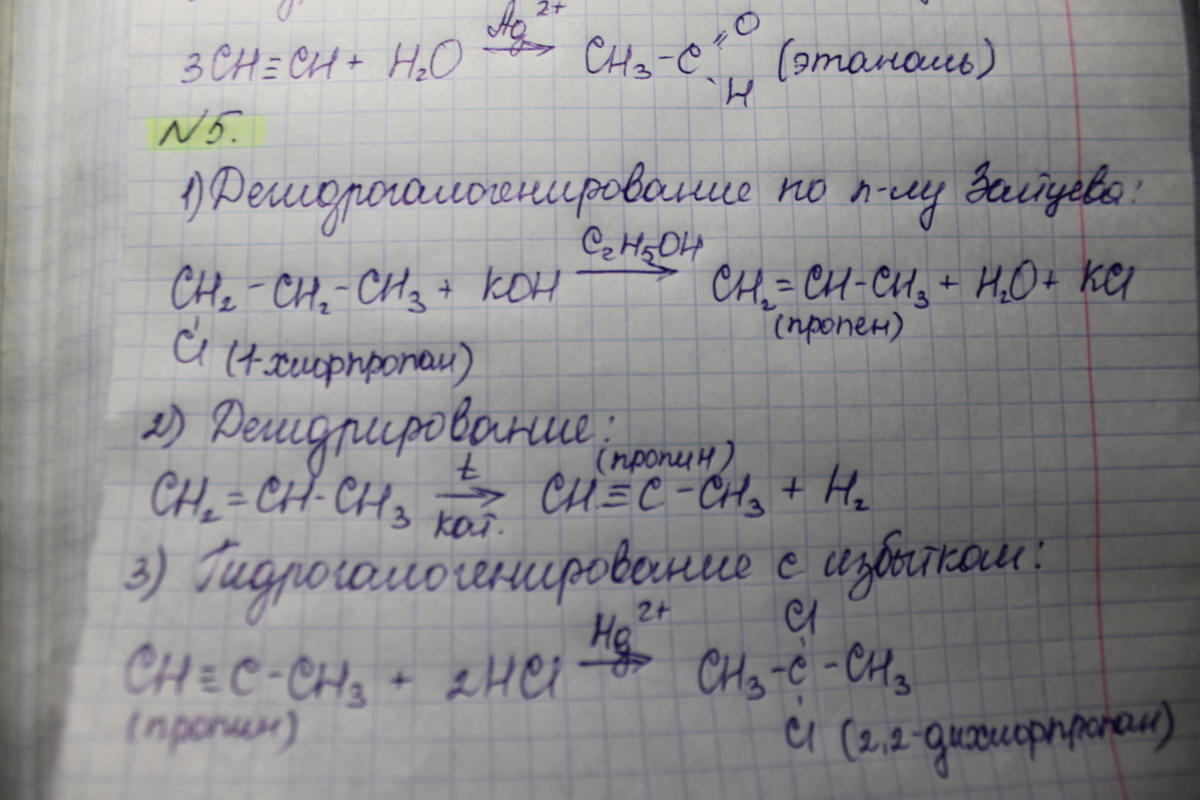 3CH≡CH + H₂O —Ag²⁺→ CH₃-C(=O)-H (этаналь)
N5.
1) Дегидрогалогенирование по п-лу Зайцева:
CH₂-CH₂-CH₃ + KOH —C₂H₅OH→ CH₂=CH-CH₃ + H₂O + KCl
Cl (1-хлорпропан) (пропен)
2) Дегидрирование:
(пропин)
CH₂=CH-CH₃ —t, кат.→ CH≡C-CH₃ + H₂
3) Гидрогалогенирование с избытком:
Cl
CH≡C-CH₃ + 2HCl —Hg²⁺→ CH₃-C-CH₃
(пропин) Cl (2,2-дихлорпропан)